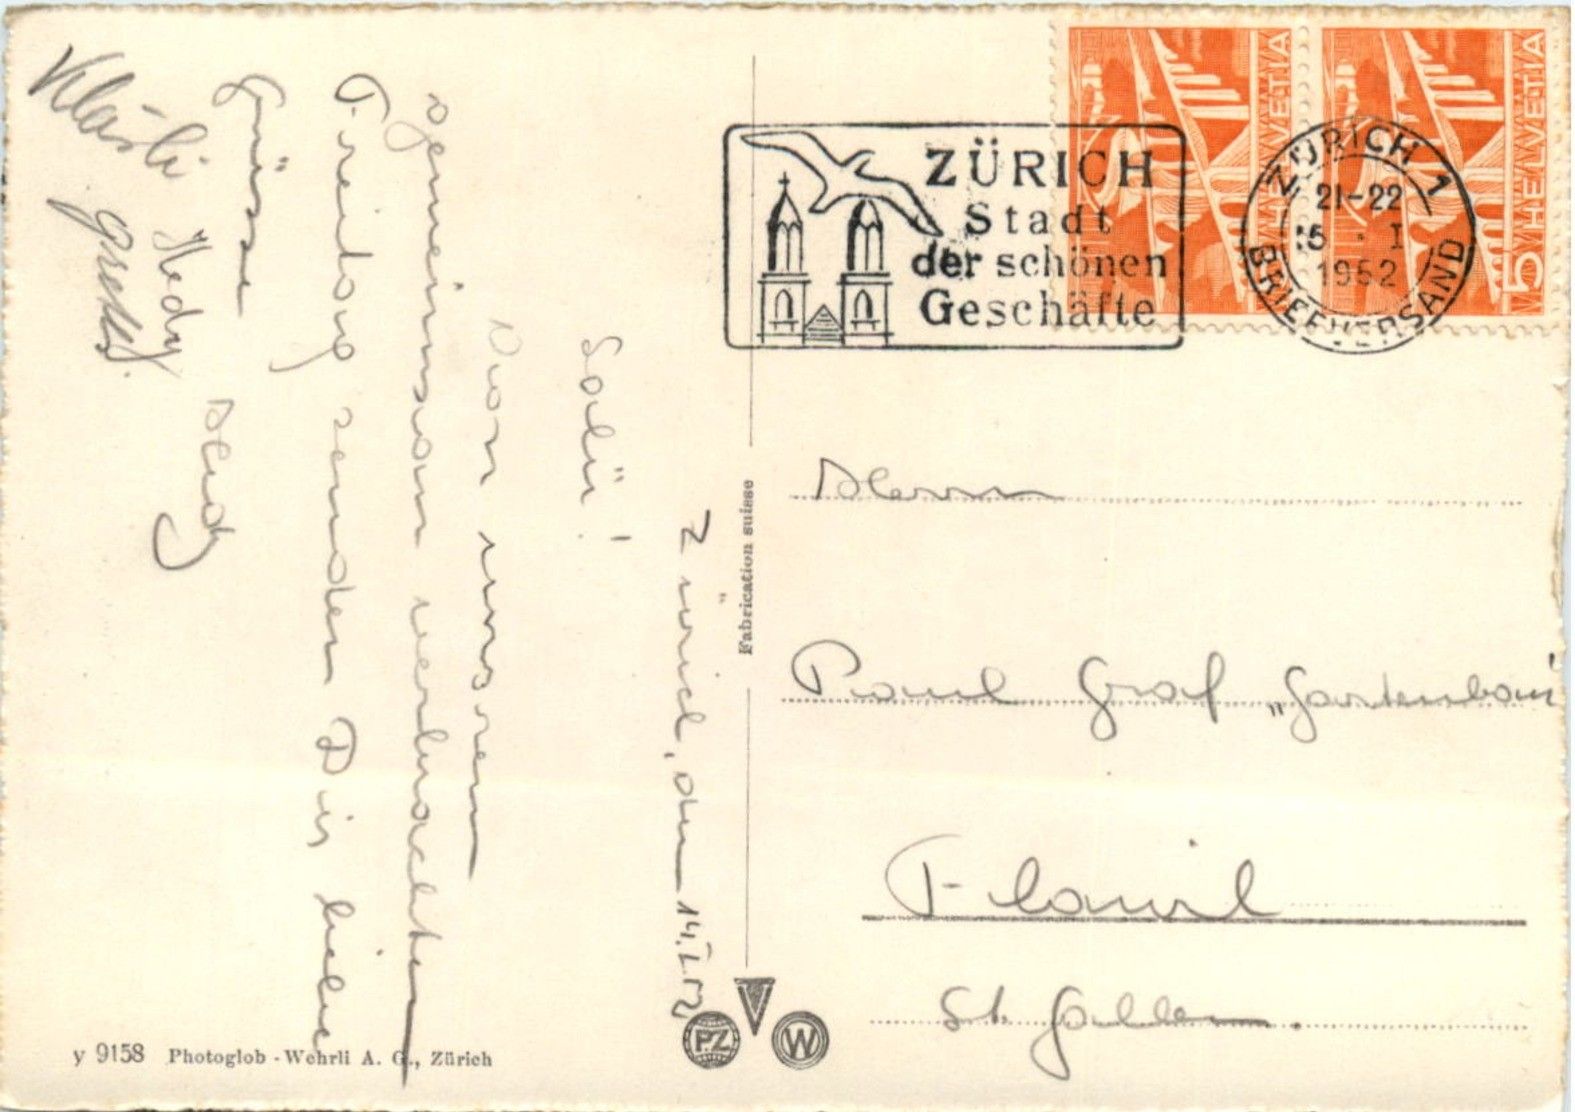 ZÜRICH
Stadt
der schönen
Geschäfte
ZÜRICH 1
21-22
15. I
1952
BRIEFVERSAND
5 HELVETIA
5 HELVETIA
Zürich, den 14.I.52
Salü!
Von unsrem
gemeinsam verbrachten
Freitag senden Dir liebe
Grüsse
Heidy
Hedy
Herrn
Paul Graf „Gartenbau
Flawil
St. Gallen.
Fabrication suisse
PZ
W
y 9158 Photoglob - Wehrli A. G., Zürich